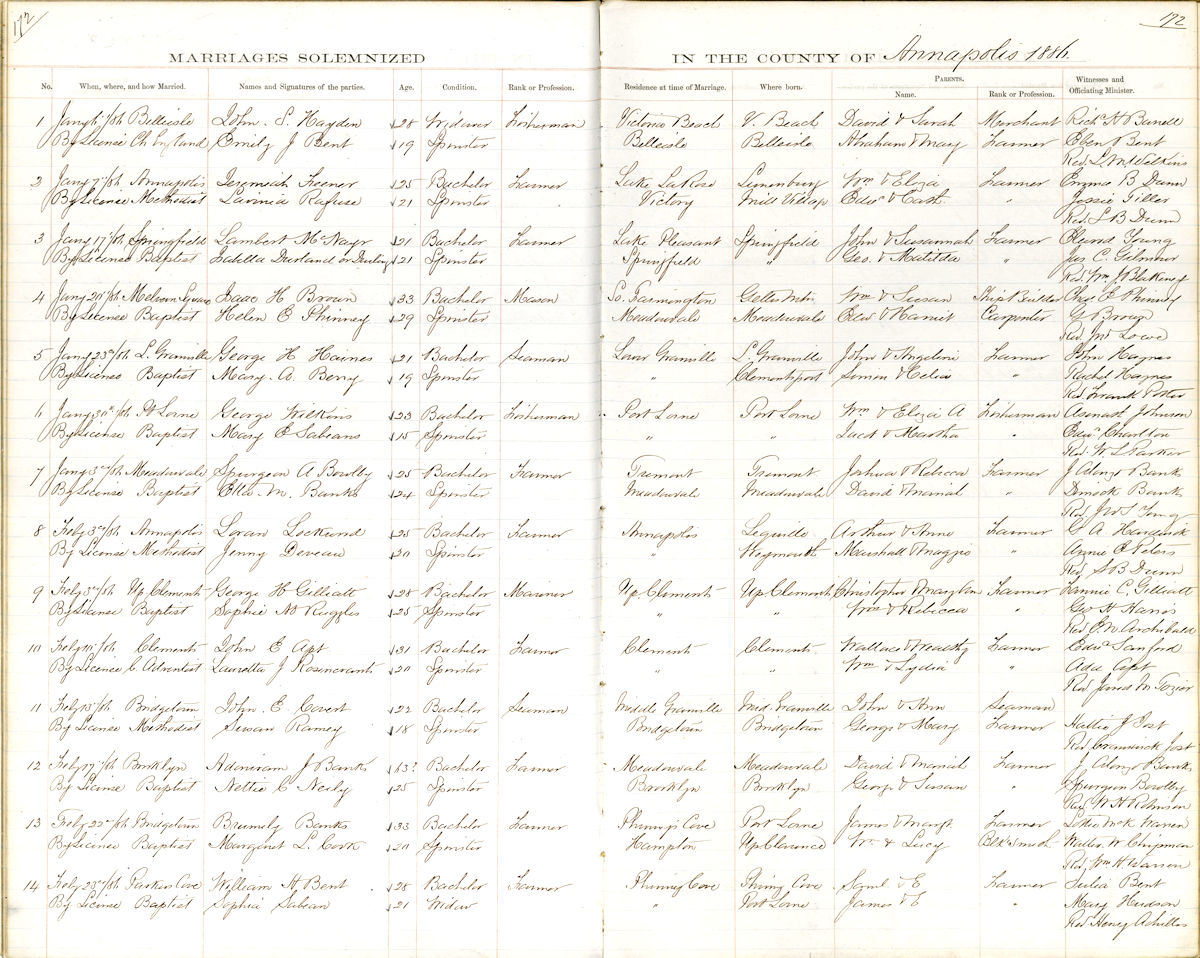 172
172
MARRIAGES SOLEMNIZED IN THE COUNTY OF Annapolis 1886.
No. When, where, and how Married. Names and Signatures of the parties. Age. Condition. Rank or Profession. Residence at time of Marriage. Where born. PARENTS. Name. Rank or Profession. Witnesses and Officiating Minister.
1 Belleisle John. S. Hayden 28 Widower Fisherman Victoria Beach V. Beach David & Sarah Merchant Richd H
By License Ch England Emily J Bent 19 Spinster Belleisle Belleisle Abraham & Mary Farmer Eben Bent
Revd Wilkins
2 Annapolis Jeremiah 25 Bachelor Farmer Lake LaRose Lunenburg Wm & Eliza Farmer Emma B Dunn
By License Methodist Lavinia Rafuse 21 Spinster Victory Mill Village Edwd & Cath. " Jessie
Revd S B Dunn
3 Jany 17th/86 Springfield Lambert McNayr 21 Bachelor Farmer Lake Pleasant Springfield John & Susannah Farmer Young
By License Baptist Durland or 21 Spinster Springfield " Geo. & Matilda " Jas C. Gilmour
Revd Wm H
4 Isaac H Brown 33 Bachelor Mason So. Farmington Wm & Susan Ship Builder Phinney
By License Baptist Helen E Phinney 29 Spinster Meadowvale Meadowvale Edw & Harriet Carpenter Brown
Revd Jno Lowe
5 L. Granville George H Haines 21 Bachelor Seaman Lower Granville L. Granville John & Angelina Farmer John Haynes
By License Baptist Mary. A. Berry 19 Spinster " Clementsport Simon & Celia " Rachel Haynes
Revd Frank Potter
6 Pt Lorne George Wilkins 23 Bachelor Fisherman Port Lorne Port Lorne Wm & Eliza A Fisherman Asenath Johnson
By License Baptist Mary E Sabeans 15 Spinster " " Jacob & Martha " Edwd Charlton
Revd W. L Parker
7 Meadowvale Spurgeon A. Bowlby 25 Bachelor Farmer Tremont Tremont Joshua & Rebecca Farmer J Alonzo Banks
By License Baptist Ella. M. Banks 24 Spinster Meadowvale Meadowvale David & " Dimock Banks
Revd
8 Feby 3rd/86 Annapolis Loran 25 Bachelor Farmer Annapolis Lequille Arthur & Anne Farmer
By License Methodist Jenny Deveau 20 Spinster " Weymouth Marshall & Maggie " Annie Peters
Revd S B Dunn
9 Feby 3rd/86 Up Clements George H Gilliatt 28 Bachelor Mariner Up. Clements Up Clements Christopher & Mary Ann Farmer Fannie C. Gilliatt
By License Baptist Sophie Ruggles 25 Spinster " " Wm & Rebecca " Geo H Harris
Revd Archibald
10 Clements John E Apt 31 Bachelor Farmer Clements Clements Wallace & Farmer Edwd Sanford
By License C. Adventist Lauretta J Rosencrants 20 Spinster " " Wm & Lydia " Ada Apt
Revd Tozier
11 Bridgetown John. E. Covert 22 Bachelor Seaman Middle Granville Mid. Granville John & Ann Seaman
By License Methodist Susan Ramey 18 Spinster Bridgetown Bridgetown George & Mary Farmer Hattie J Jost
Revd Cranswick Jost
12 Brooklyn Adoniram J Banks Bachelor Farmer Meadowvale Meadowvale David & Farmer J Alonzo Banks
By License Baptist Nettie C Neily 25 Spinster Brooklyn Brooklyn George & Susan " Spurgeon Bowlby
Revd W H Robinson
13 Bridgetown Banks 33 Bachelor Farmer Phinneys Cove Port Lorne James & Margt Farmer Warren
By License Baptist Margaret L. 20 Spinster Hampton Up Clarence Wm & Lucy Blk Smith Walter W Chipman
Revd Wm H Warren
14 Parkers Cove William H Bent 28 Bachelor Farmer Phinny Cove Phinny Cove Saml & E Farmer Julia Bent
By License Baptist Sophia Sabean 21 Widow " Port Lorne James & E " Mary Hudson
Revd Henry Achilles